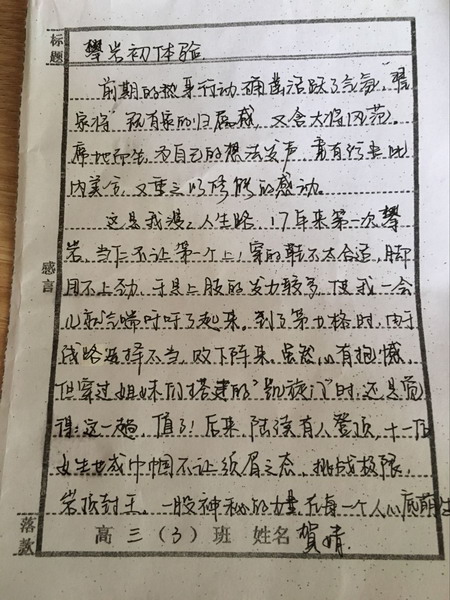 标题 攀岩初体验
前期的热身行动,确实活跃了气氛,"翟
家将"既有家的归属感,又含大将风范。
席地而坐,为自己的想法发声,
内美言,又重之以修能的感动。
这是我漫漫人生路,17年来第一次攀
岩,当仁不让第一个上!穿的鞋不太合适,脚
用不上劲,于是上肢的发力较多,使我一会
儿就气喘吁吁了起来。到了第九格时,由于
线路选择不当,败下阵来。虽然心有抱憾,
但穿过姐妹们搭建的"凯旋门"时,还是觉
得:这一趟,值了!后来,陆续有人登顶,十一位
女生也成巾帼不让须眉之态,挑战极限,
岩顶封王。一股神秘的力量在每一个人心底萌生
感言
落款 高三(3)班 姓名 贺婧